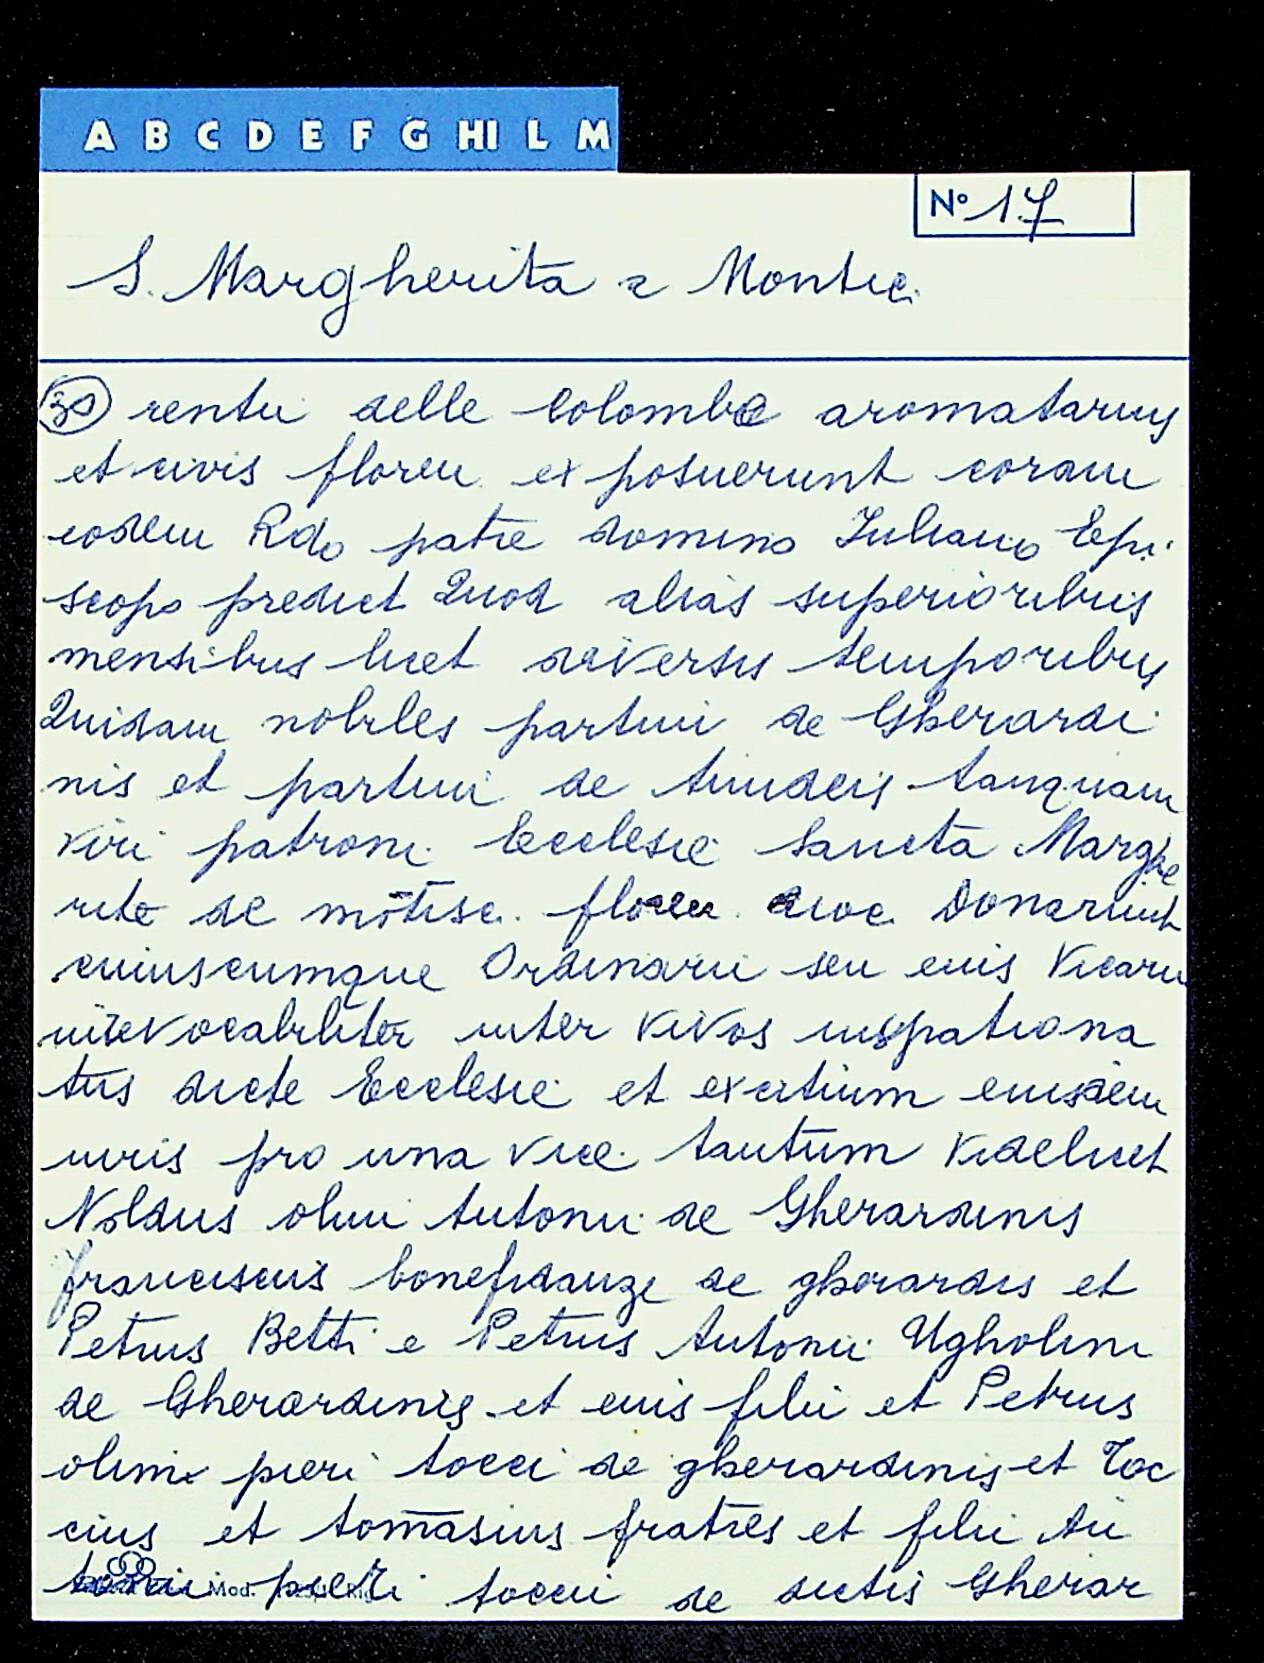 A B C D E F G HI L M
N° 17
S. Margherita a Montici
30 rentii delle Colombe aromatarius
et civis floren. exposuerunt coram
eodem Rdo patre domino Juliano Epi-
scopo predict Quod alias superioribus
mensibus licet diversis temporibus
Quidam nobiles partim de Gherardi
nis et partim de amideis tanquam
viri patroni Ecclesie Sancta Marghe
rite de mōtise. floren dioc. Donarunt
cuiuscumque Ordinarii seu eius Vicarii
irrevocabiliter inter vivos iuspatrona
tus dicte Ecclesie et exercitium eiusdem
iuris pro una vice tantum videlicet
Noldus olim Antonii de Gherardinis
franciscus bonefidanze de gherardis et
Petrus Betti e Petrus Antonii Ugholini
de Gherardinis et eius filii et Petrus
olim pieri tocci de gherardinis et Toc
cius et tomāsius fratres et filii An
tonii pieri tocci de dictis Gherar
Mod.